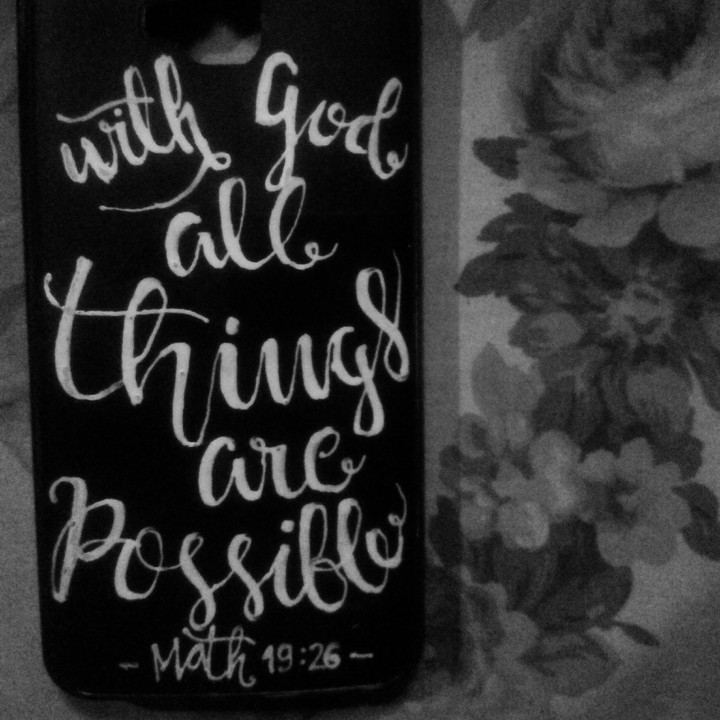 with God
all
things
are
Possible
- Math 19:26 -